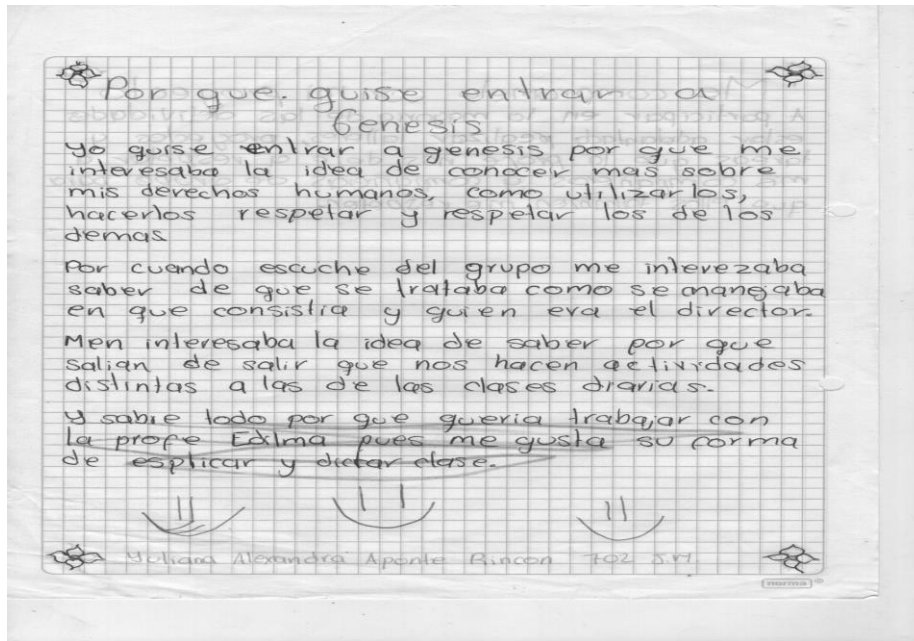 Por que. quise entrar a
Genesis
yo quise entrar a genesis por que me
interesaba la idea de conocer mas sobre
mis derechos humanos, como utilizarlos,
hacerlos respetar y respetar los de los
demas
Por cuando escuche del grupo me interezaba
saber de que se trataba como se manejaba
en que consistia y quien era el director.
Men interesaba la idea de saber por que
salian de salir que nos hacen actividades
distintas a las de las clases diarias.
Y sobre todo por que queria trabajar con
la profe Edilma pues me gusta su forma
de esplicar y dictar clase.
Yuliana Alexandra Aponte Rincon 702 J.M.
norma